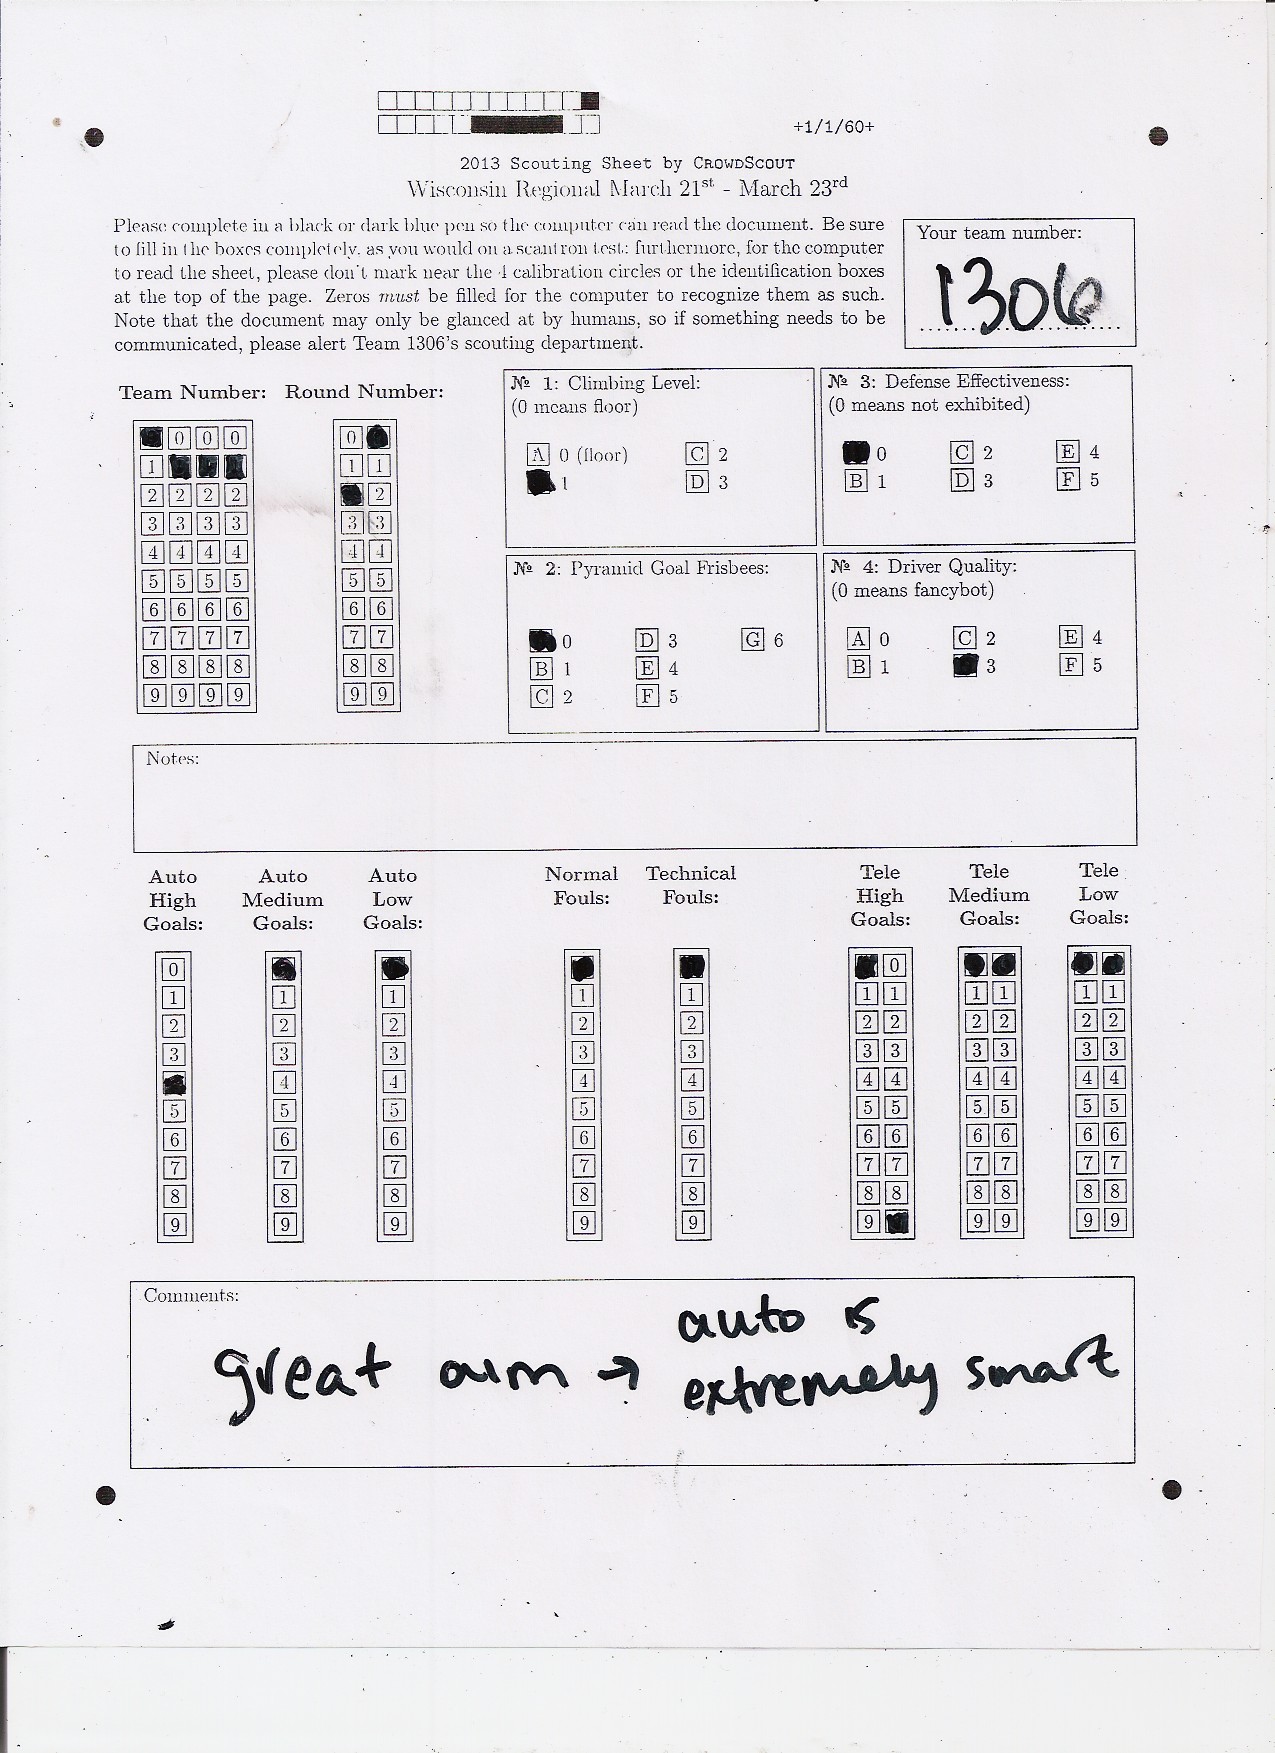 +1/1/60+
2013 Scouting Sheet by CROWDSCOUT
Wisconsin Regional March 21st - March 23rd
Please complete in a black or dark blue pen so the computer can read the document. Be sure
to fill in the boxes completely, as you would on a scantron test; furthermore, for the computer
to read the sheet, please don't mark near the 4 calibration circles or the identification boxes
at the top of the page. Zeros must be filled for the computer to recognize them as such.
Note that the document may only be glanced at by humans, so if something needs to be
communicated, please alert Team 1306's scouting department.
Your team number:
1306
Team Number: Round Number:
0 0 0 0
1 1 1
2 2 2 2 2
3 3 3 3 3 3
4 4 4 4 4 4
5 5 5 5 5 5
6 6 6 6 6 6
7 7 7 7 7 7
8 8 8 8 8 8
9 9 9 9 9 9
№ 1: Climbing Level:
(0 means floor)
A 0 (floor) C 2
1 D 3
№ 3: Defense Effectiveness:
(0 means not exhibited)
0 C 2 E 4
B 1 D 3 F 5
№ 2: Pyramid Goal Frisbees:
0 D 3 G 6
B 1 E 4
C 2 F 5
№ 4: Driver Quality:
(0 means fancybot)
A 0 C 2 E 4
B 1 3 F 5
Notes:
Auto High Goals:
Auto Medium Goals:
Auto Low Goals:
Normal Fouls:
Technical Fouls:
Tele High Goals:
Tele Medium Goals:
Tele Low Goals:
0 0
1 1 1 1 1 1 1 1 1 1 1
2 2 2 2 2 2 2 2 2 2 2
3 3 3 3 3 3 3 3 3 3 3
4 4 4 4 4 4 4 4 4 4
5 5 5 5 5 5 5 5 5 5 5
6 6 6 6 6 6 6 6 6 6 6
7 7 7 7 7 7 7 7 7 7 7
8 8 8 8 8 8 8 8 8 8 8
9 9 9 9 9 9 9 9 9 9
Comments:
great aim → auto is
extremely smart